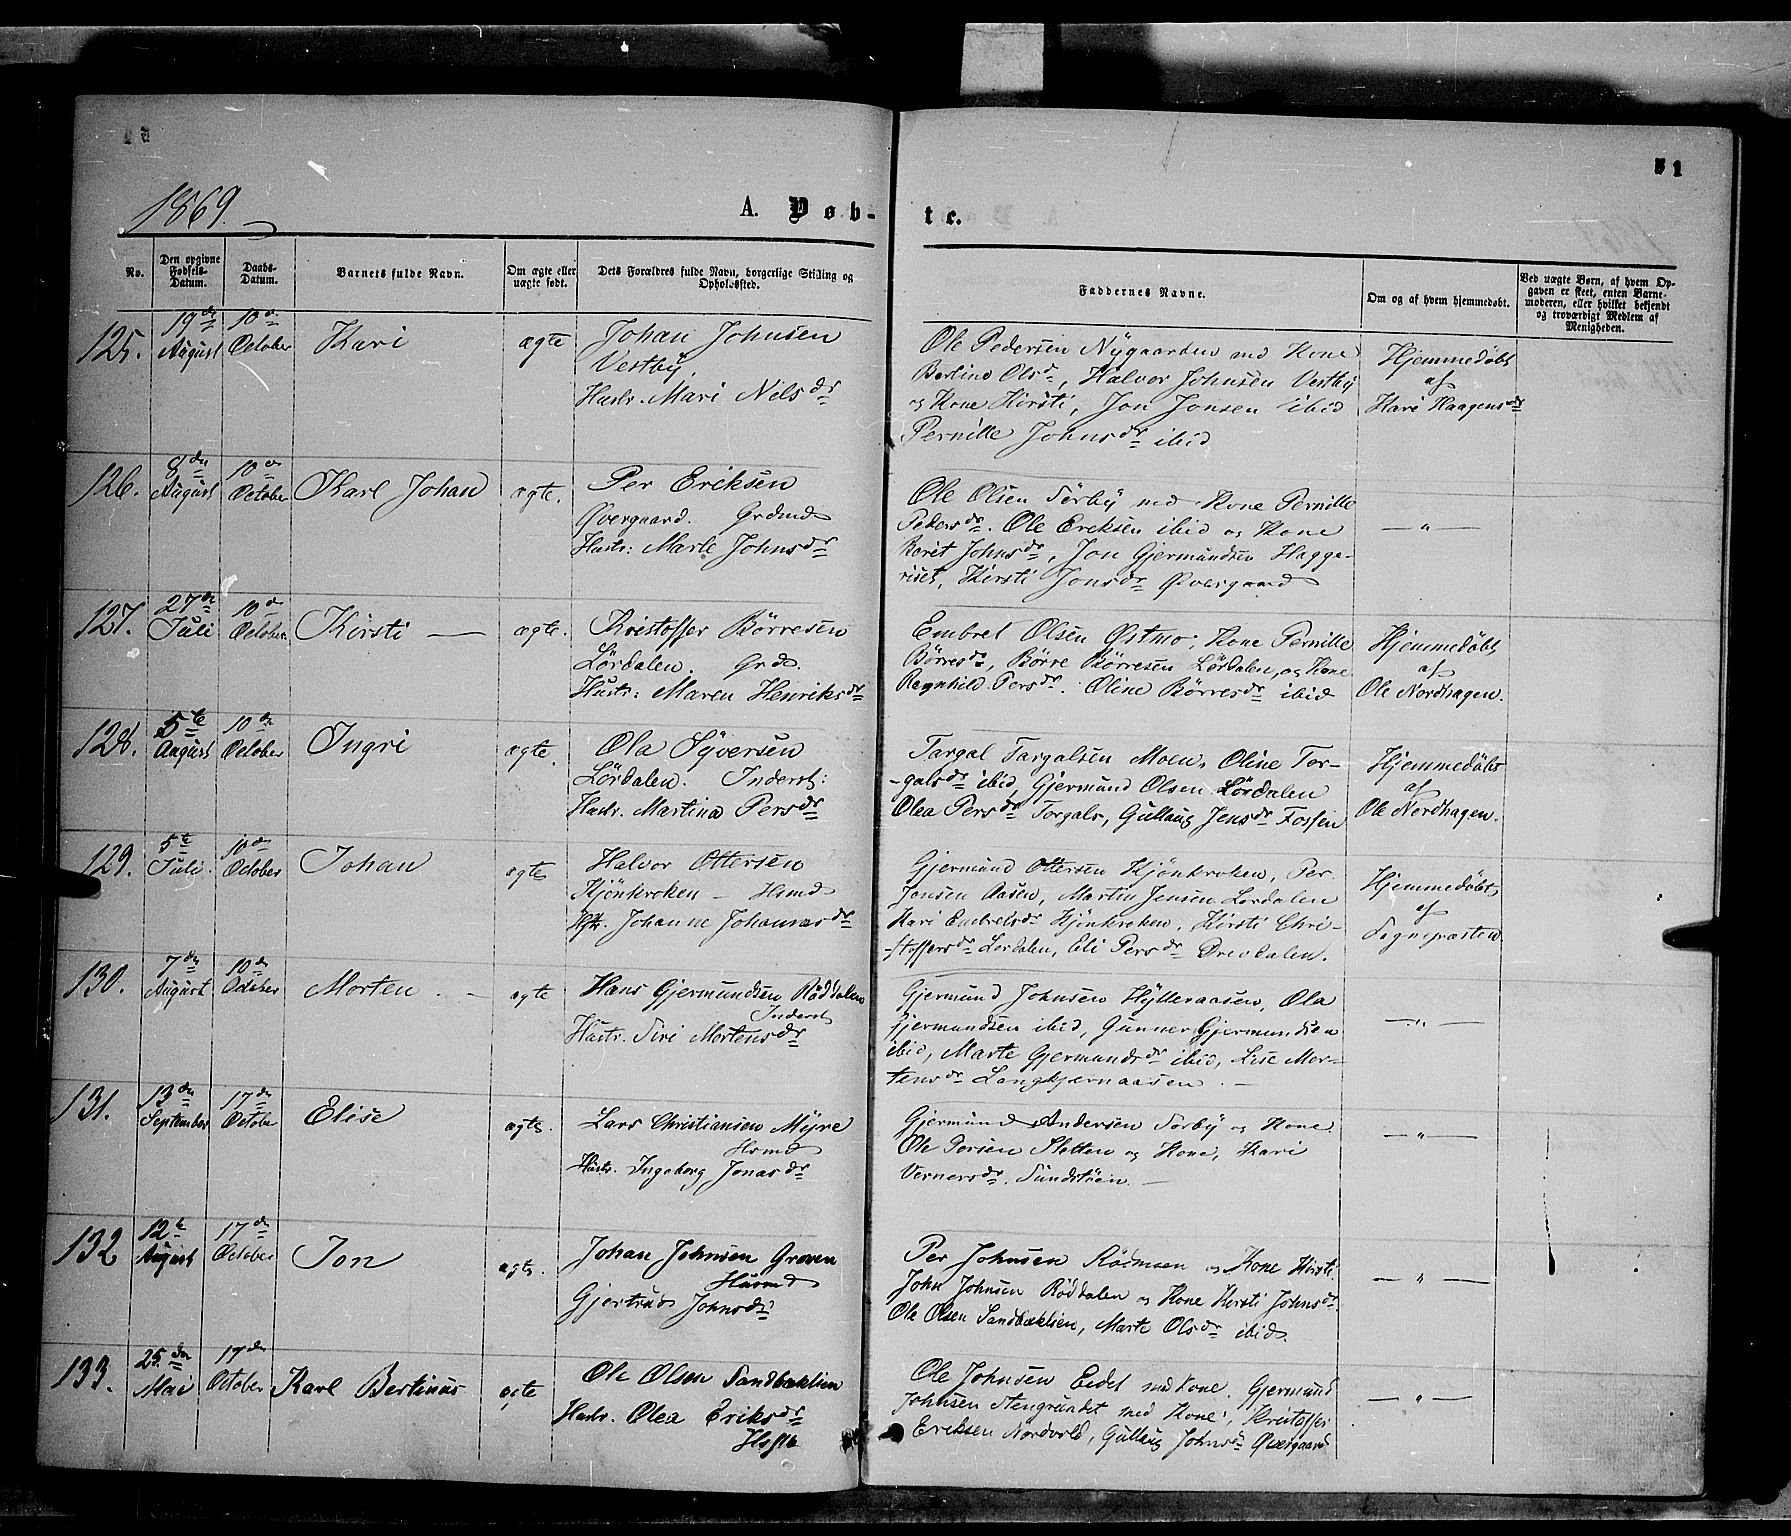 71
1869.
A. Døb-
te.
No.
Den opgivne Fødsels-Datum.
Daabs-Datum.
Barnets fulde Navn.
Om ægte eller uægte født.
Dets Forældres fulde Navn, borgerlige Stilling og Opholdssted.
Faddernes Navne.
Om og af hvem hjemmedøbt.
Ved uægte Børn, af hvem Opgaven er skeet, enten Barnemoderen, eller hvilket bekjendt og troværdigt Medlem af Menigheden.
125.
19de August
10de October
Kari
ægte
Johan Johnsen
Vestby
Hustr. Mari Nilsdr
Ole Pedersen Nygaarden med Kone
Bertine Olsd, Halvor Johnsen Vestby
og Kone Kirsti, Jon Jonsen ibid
Pernille Johnsdr ibid
Hjemmedöbt
af
Kari Haagensdr
126.
8de August
10de October
Karl Johan
ægte.
Per Eriksen
Øvergaard. Grdmd
Hustr: Marte Johnsdr
Ole Olsen Sörby med Kone Pernille
Pedersdr. Ole Ereksen ibid og Kone
Berit Johnsdr, Jon Gjermundsen Hagge-
riset, Kirsti Jonsdr Øvergaard
— " —
127.
27de Juli
10de October.
Kirsti —
ægte.
Kristoffer Börresen
Lördalen. Grd.
Hustr: Maren Henriksdr
Embret Olsen Østmo, Kone Pernille
Börresdr, Börre Börresen Lördalen, og Kone
Ragnhild Persdr. Oline Börresdr ibid
Hjemmedöbt
af
Ole Nordhagen.
128.
5te August
10de October
Ingri
ægte.
Ola Syversen
Lördalen. Inderst:
Hustr. Martina Persdr
Targal Targalsen Moen, Oline Tor-
-galsdr ibid, Gjermund Olsen Lördalen
Olea Persdr Torgals, Gullaug Jensdr Fossen
Hjemmedöbt
af
Ole Nordhagen.
129.
5te Juli.
10de October
Johan
ægte
Halvor Ottersen
Kjönkroken — Hsmd
Hstr. Johanne Johannesdr
Gjermund Ottersen Kjönkroken, Per
Jonsen Aasen, Martin Jensen Lordalen
Kari Embretsdr Kjönkroken, Kirsti Chri-
-stoffersdr Lordalen, Eli Persdr Drevdalen.
Hjemmedöbt
af
Sognepræsten
130.
7de August
10de October
Morten. —
ægte
Hans Gjermundsen Röddalen
Inderst
Hustr. Siri Mortensdr
Gjermund Johnsen Hylleraasen, Ola
Gjermundsen ibid, Gunner Gjermundsen
ibid, Marte Gjermundsdr ibid, Lise Mor-
tensdr Langkjernaasen. —
— " —
131.
13de September
17de October
Elise
ægte.
Lars Christiansen Myre
Hsmd
Hustr. Ingeborg Jonasdr
Gjermund Andersen Sörby og Kone.
Ole Persen Sletten og Kone, Kari
Vernersdr. Sundstöen. —
— " —
132
12te August
17de October
Jon
ægte.
Johan Johnsen Groven
Husmd
Gjertrud Johnsdr
Per Johnsen Rösmsen og Kone Kirsti
John Johnsen Röddalen og Kone Kirsti Johnsdr
Ole Olsen Sandbæklien, Marte Olsdr ibid.
— " —
133.
25de Mai
17de October
Karl Bertinus
ægte
Ole Olsen Sandbæklien
Hustr. Olea Eriksdr
Ole Johnsen Eidet med Kone. Gjermund
Johnsen Stengrundet med Kone, Kristoffer
Eriksen Nordvold, Gullaug Johnsdr Øvergaard
— " —